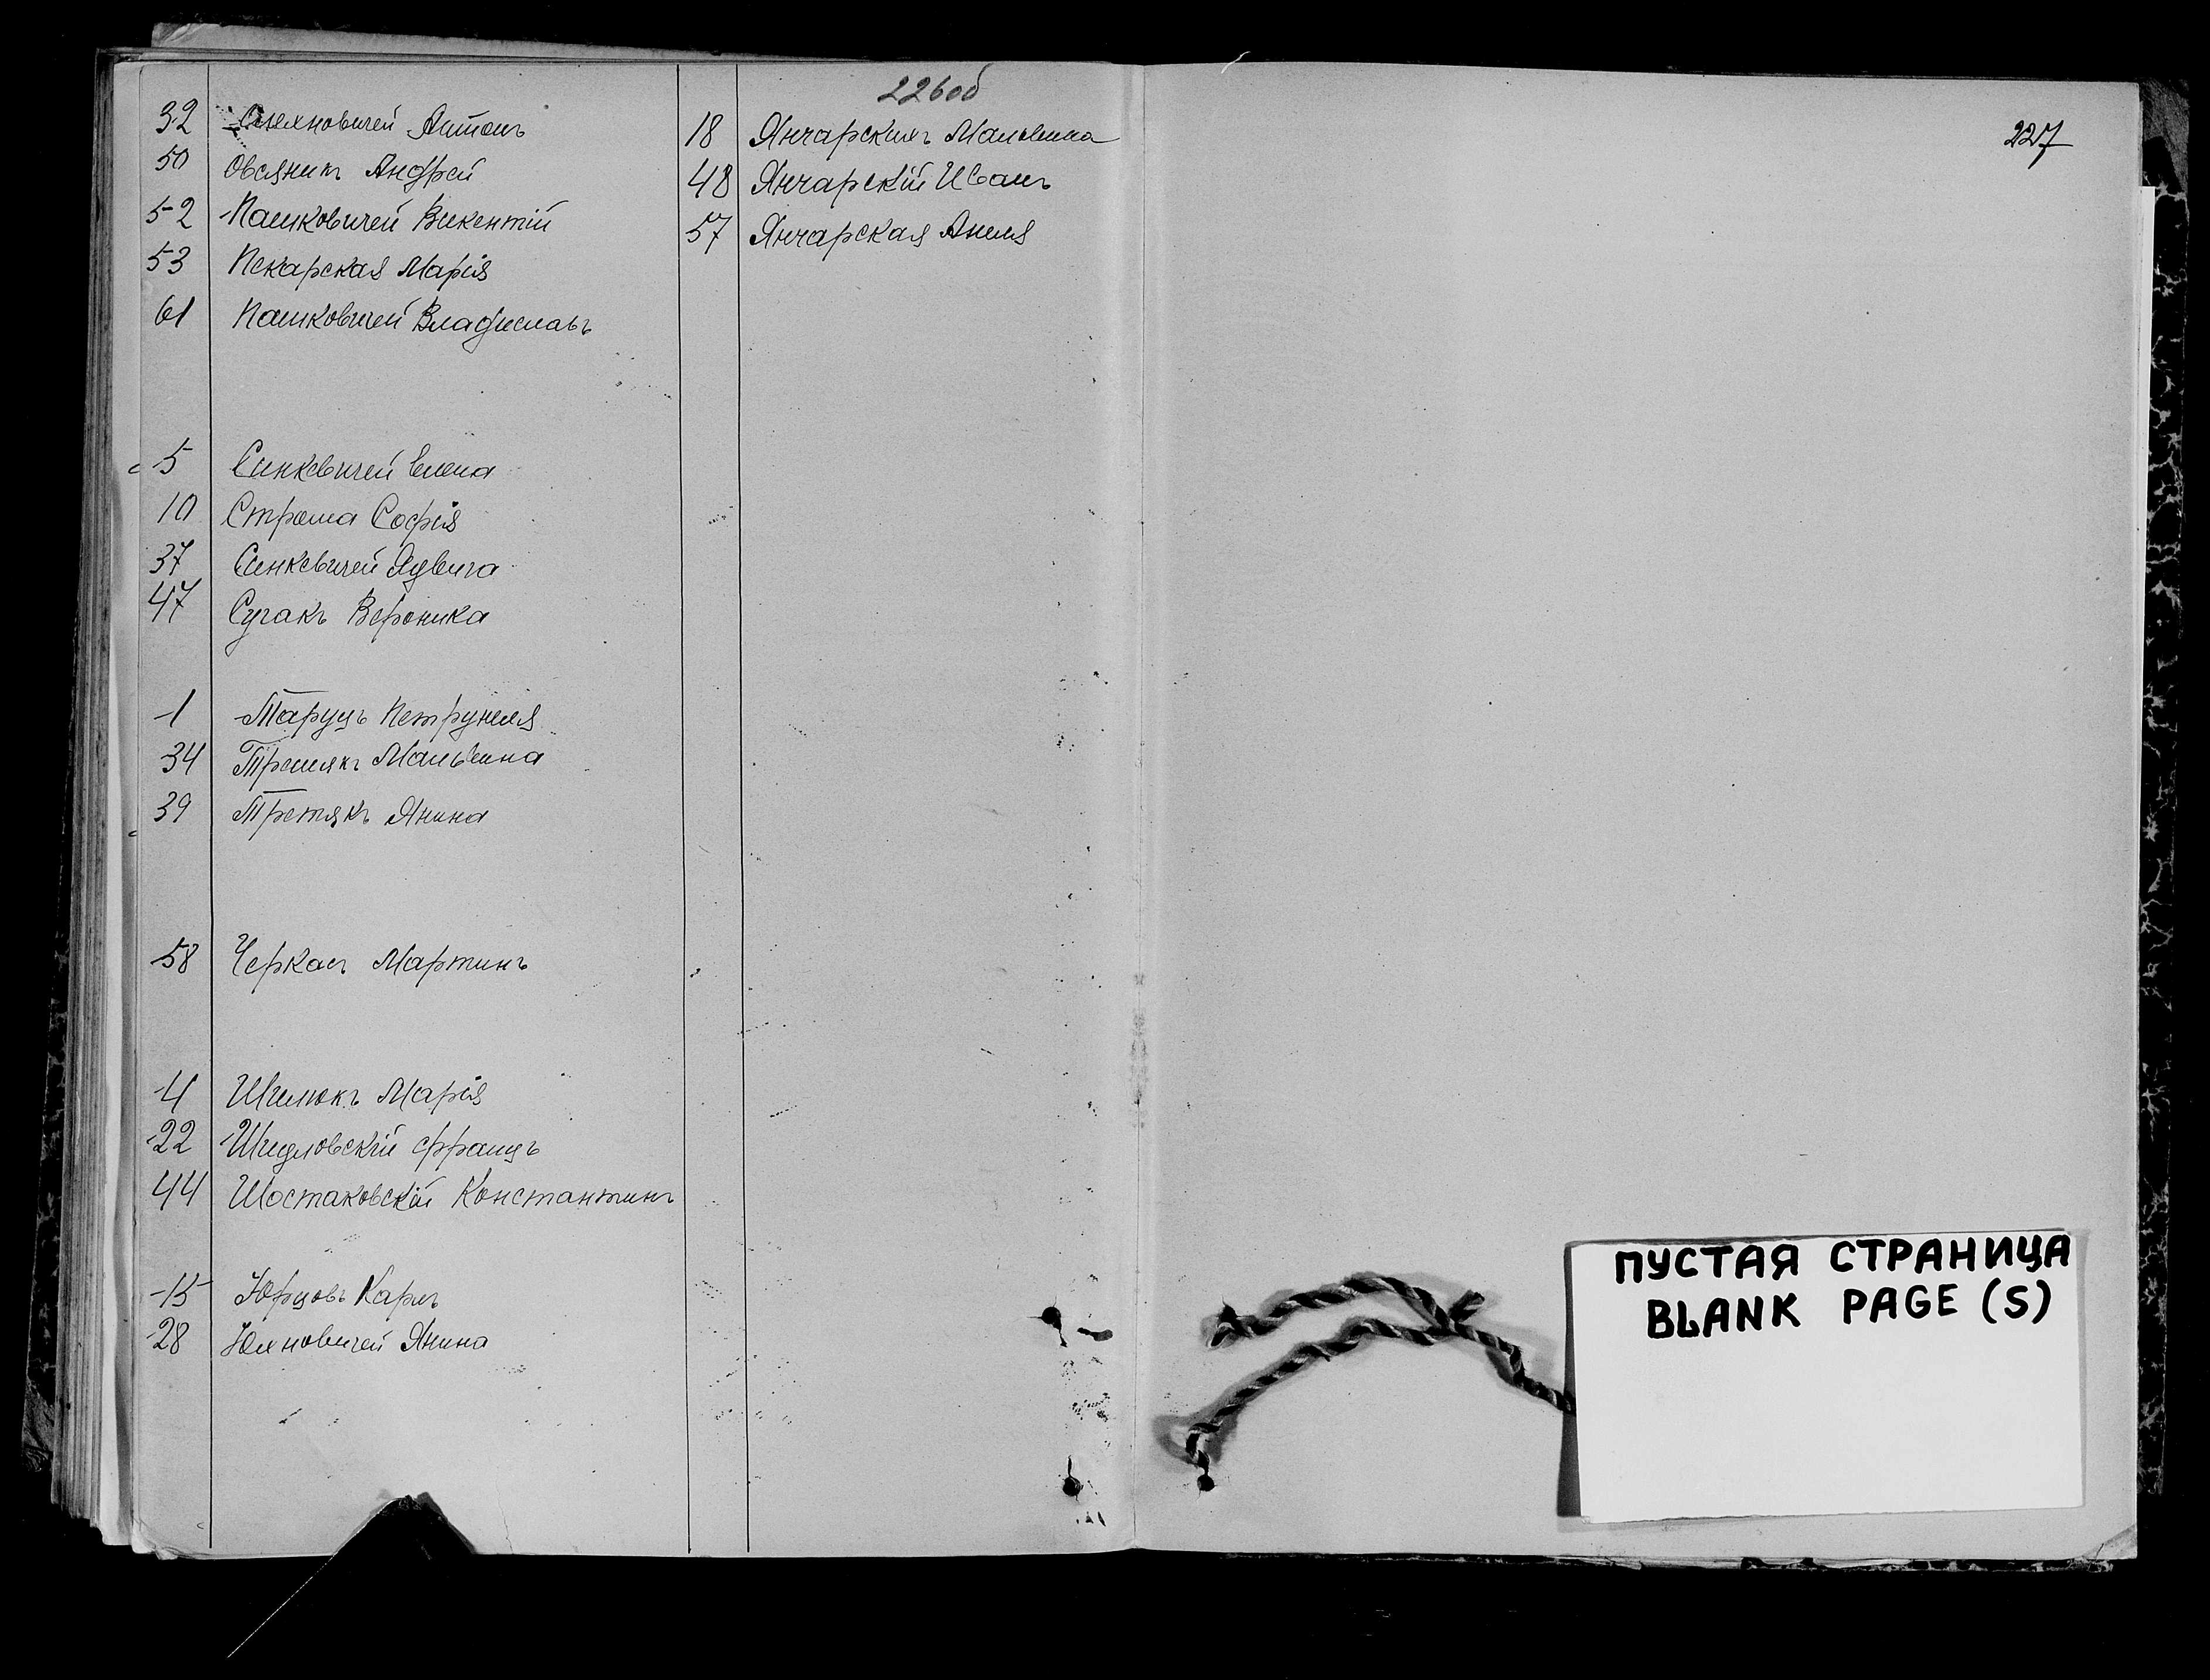 226об
32 Антонъ
50 Овсяникъ Андрей
52 Пашковичей Викентій
53 Пекарская Марія
61 Пашковичей Владиславъ
5 Синкевичей Елена
10 Строма Софія
37 Синкевичей Ядвига
47 Сугакъ Вероника
1 Таруць Петрунеля
34 Третякъ Мальвина
39 Третякъ Янина
58 Черкасъ Мартинъ
4 Марія
22 Шидловскій Францъ
44 Шостаковскій Константинъ
15 Юрцовъ Карлъ
28 Юхновичей Янина
18 Янчарскихъ Мальвина
48 Янчарскій Иванъ
57 Янчарская Анеля
227
ПУСТАЯ СТРАНИЦА
BLANK PAGE (S)